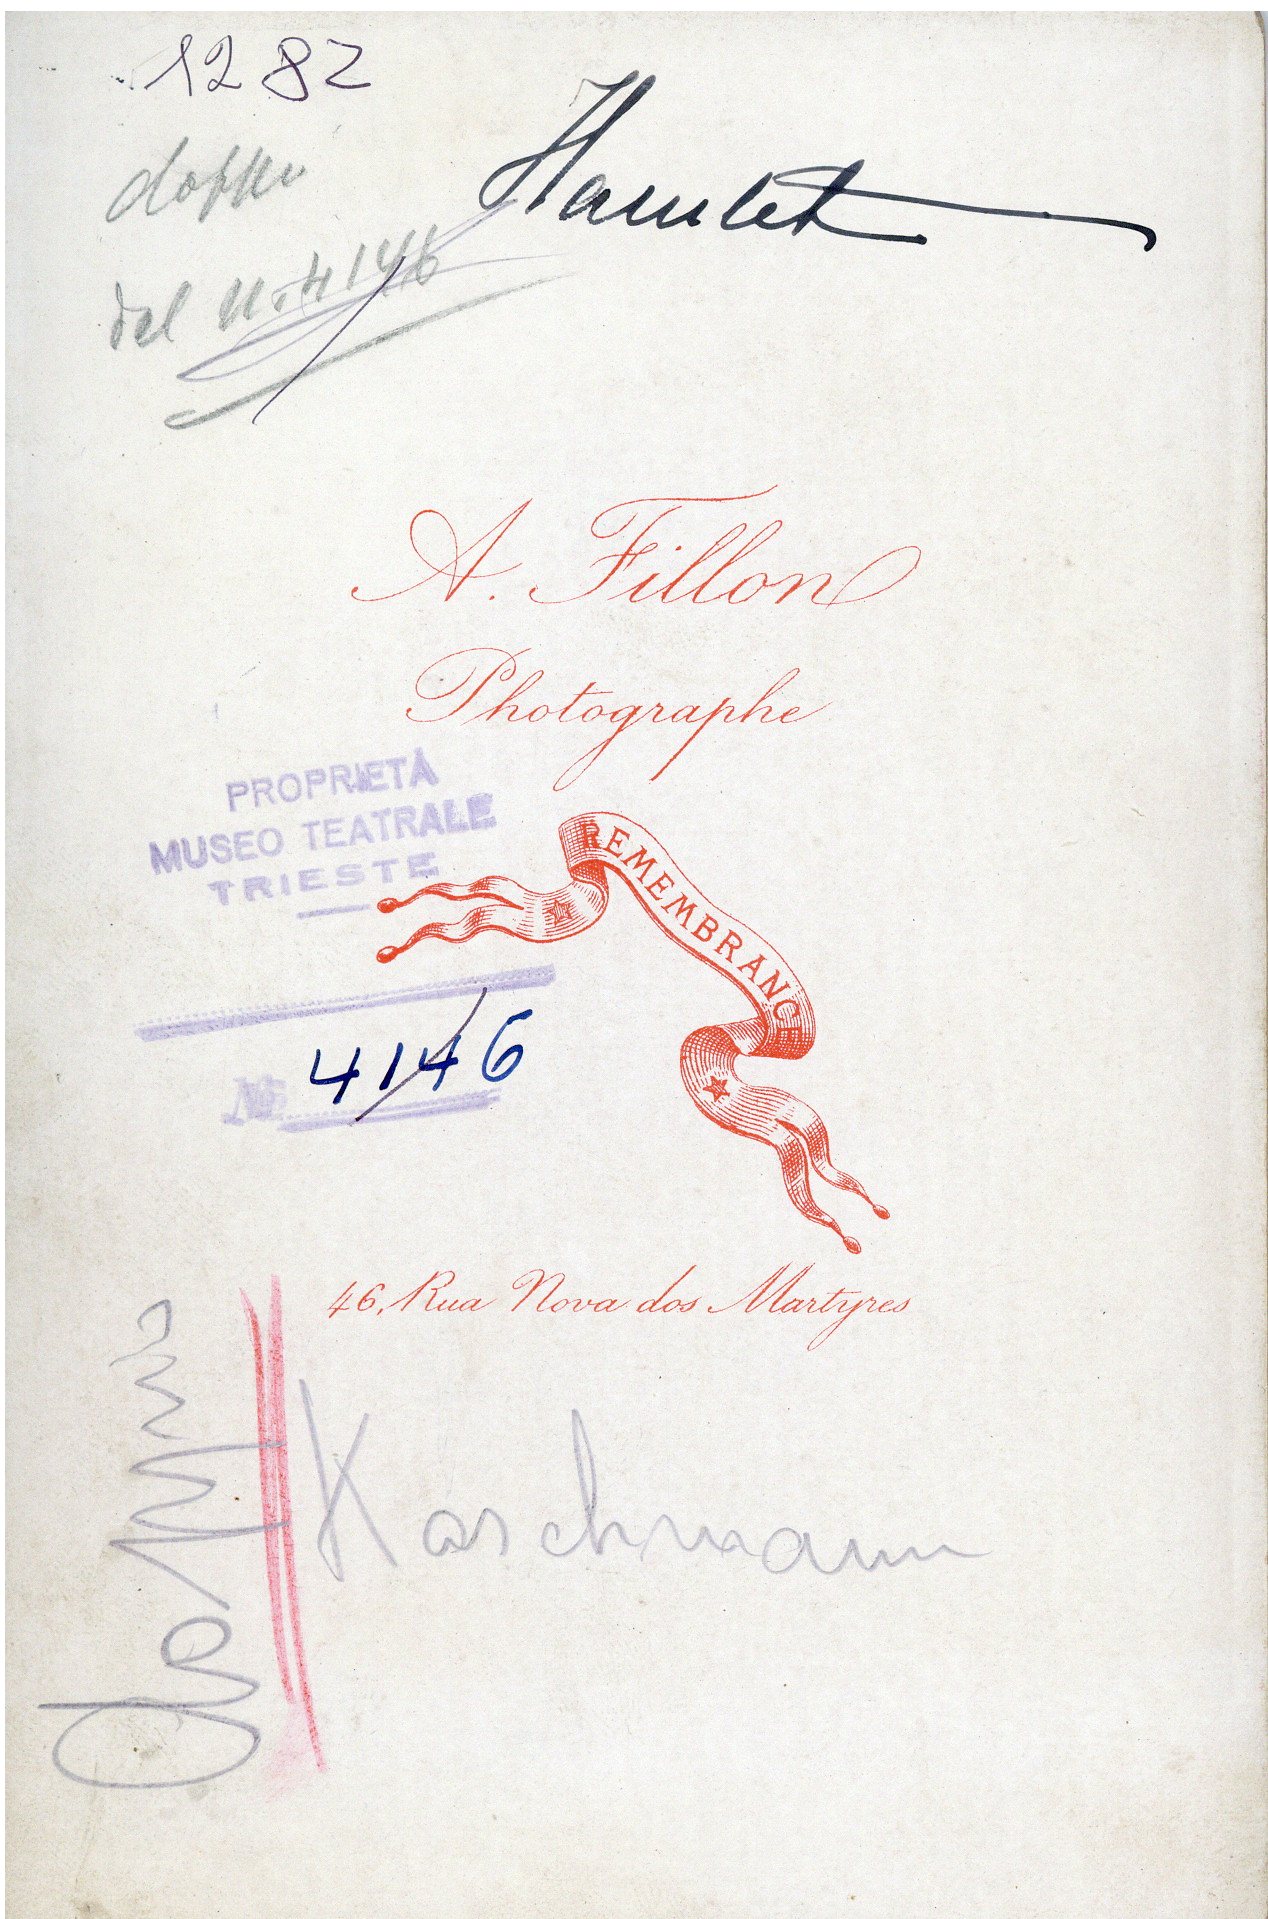 1282
Hamlet
doppio
del n. 4146
A. Fillon
Photographe
PROPRIETÀ
MUSEO TEATRALE
TRIESTE
REMEMBRANCE
4146
No
46, Rua Nova dos Martyres
doppio
Kaschmann